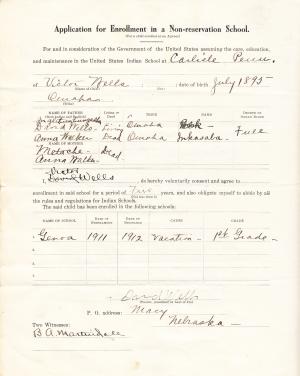 Application for Enrollment in a Non-reservation School.
For and in consideration of the Government of the United States assuming the care, education,
and maintenance in the United States Indian School at Carlisle Penn.
of Victor Wells ; date of birth July 1895
Omaha
NAME OF FATHER
TRIBE
BAND
DEGREE OF INDIAN BLOOD
David Wells Living Omaha
Anna Walker Dead Omaha Inkasaba Full
NAME OF MOTHER
Metocha Dead
Anna Walker
Victor
David Wells do hereby voluntarily consent and agree to
enrollment in said school for a period of Two years, and also obligate myself to abide by all
the rules and regulations for Indian Schools.
The said child has been enrolled in the following schools:
NAME OF SCHOOL
CAUSE
GRADE
Genoa 1911 1912 Vacation 1st Grade
David Wells
P. O. address: Macy
Nebraska
Two Witnesses:
B A Martindale